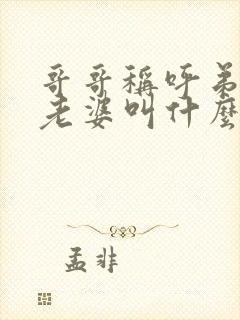 哥哥稱呼弟
老婆叫什麼
孟非